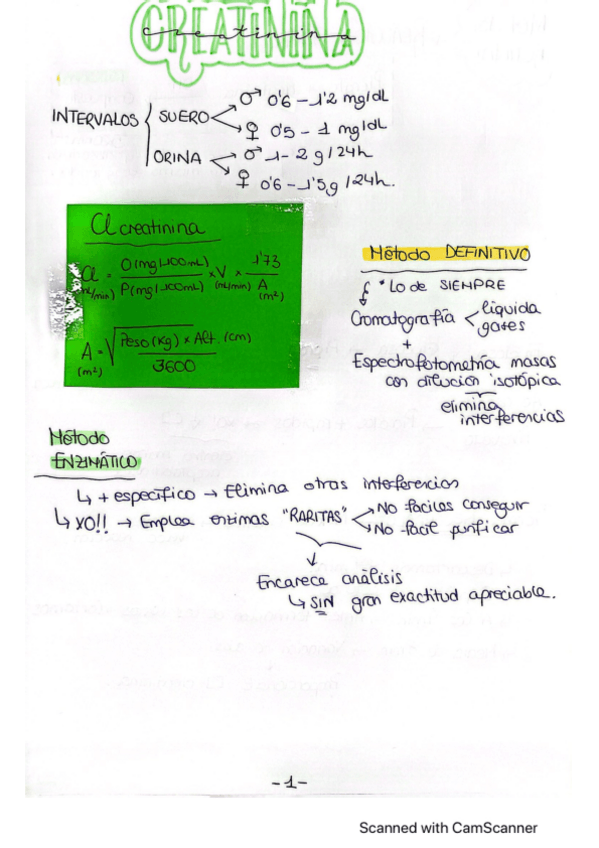 CREATININA
creatinina
INTERVALOS { SUERO ♂ 0'6 - 1'2 mg/dL
♀ 0'5 - 1 mg/dL
ORINA ♂ 1 - 2 g/24h
♀ 0'6 - 1'5g/24h.
Cl creatinina
Cl (mL/min) = O(mg/100mL) / P(mg/100mL) x V (mL/min) x 1'73 / A (m²)
A (m²) = √ Peso(Kg) x Alt. (cm) / 3600
Método DEFINITIVO
* Lo de SIEMPRE
Cromatografía < líquida
gases
+
Espectrofotometría masas
con dilución isotópica
elimina
interferencias
Método
ENZIMÁTICO
↳ + específico → Elimina otras interferencias
↳ XO!! → Emplea enzimas "RARITAS" No fáciles conseguir
No fácil purificar
↓
Encarece análisis
↳ SIN gran exactitud apreciable.
-1-
Scanned with CamScanner